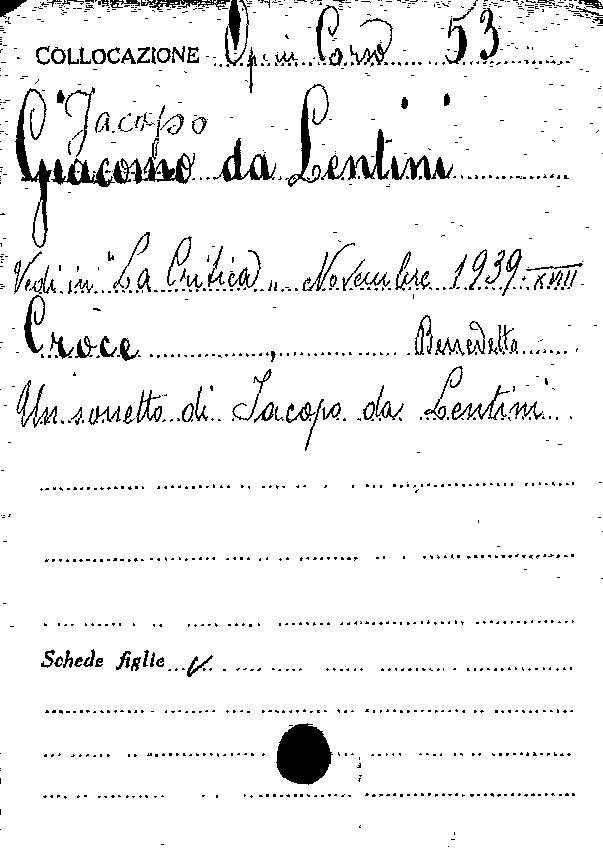 COLLOCAZIONE Op. in Corso 53
Jacopo
Giacomo da Lentini
Vedi in "La Critica" Novembre 1939-XVIII
Croce, Benedetto
Un sonetto di Jacopo da Lentini
Schede figlie